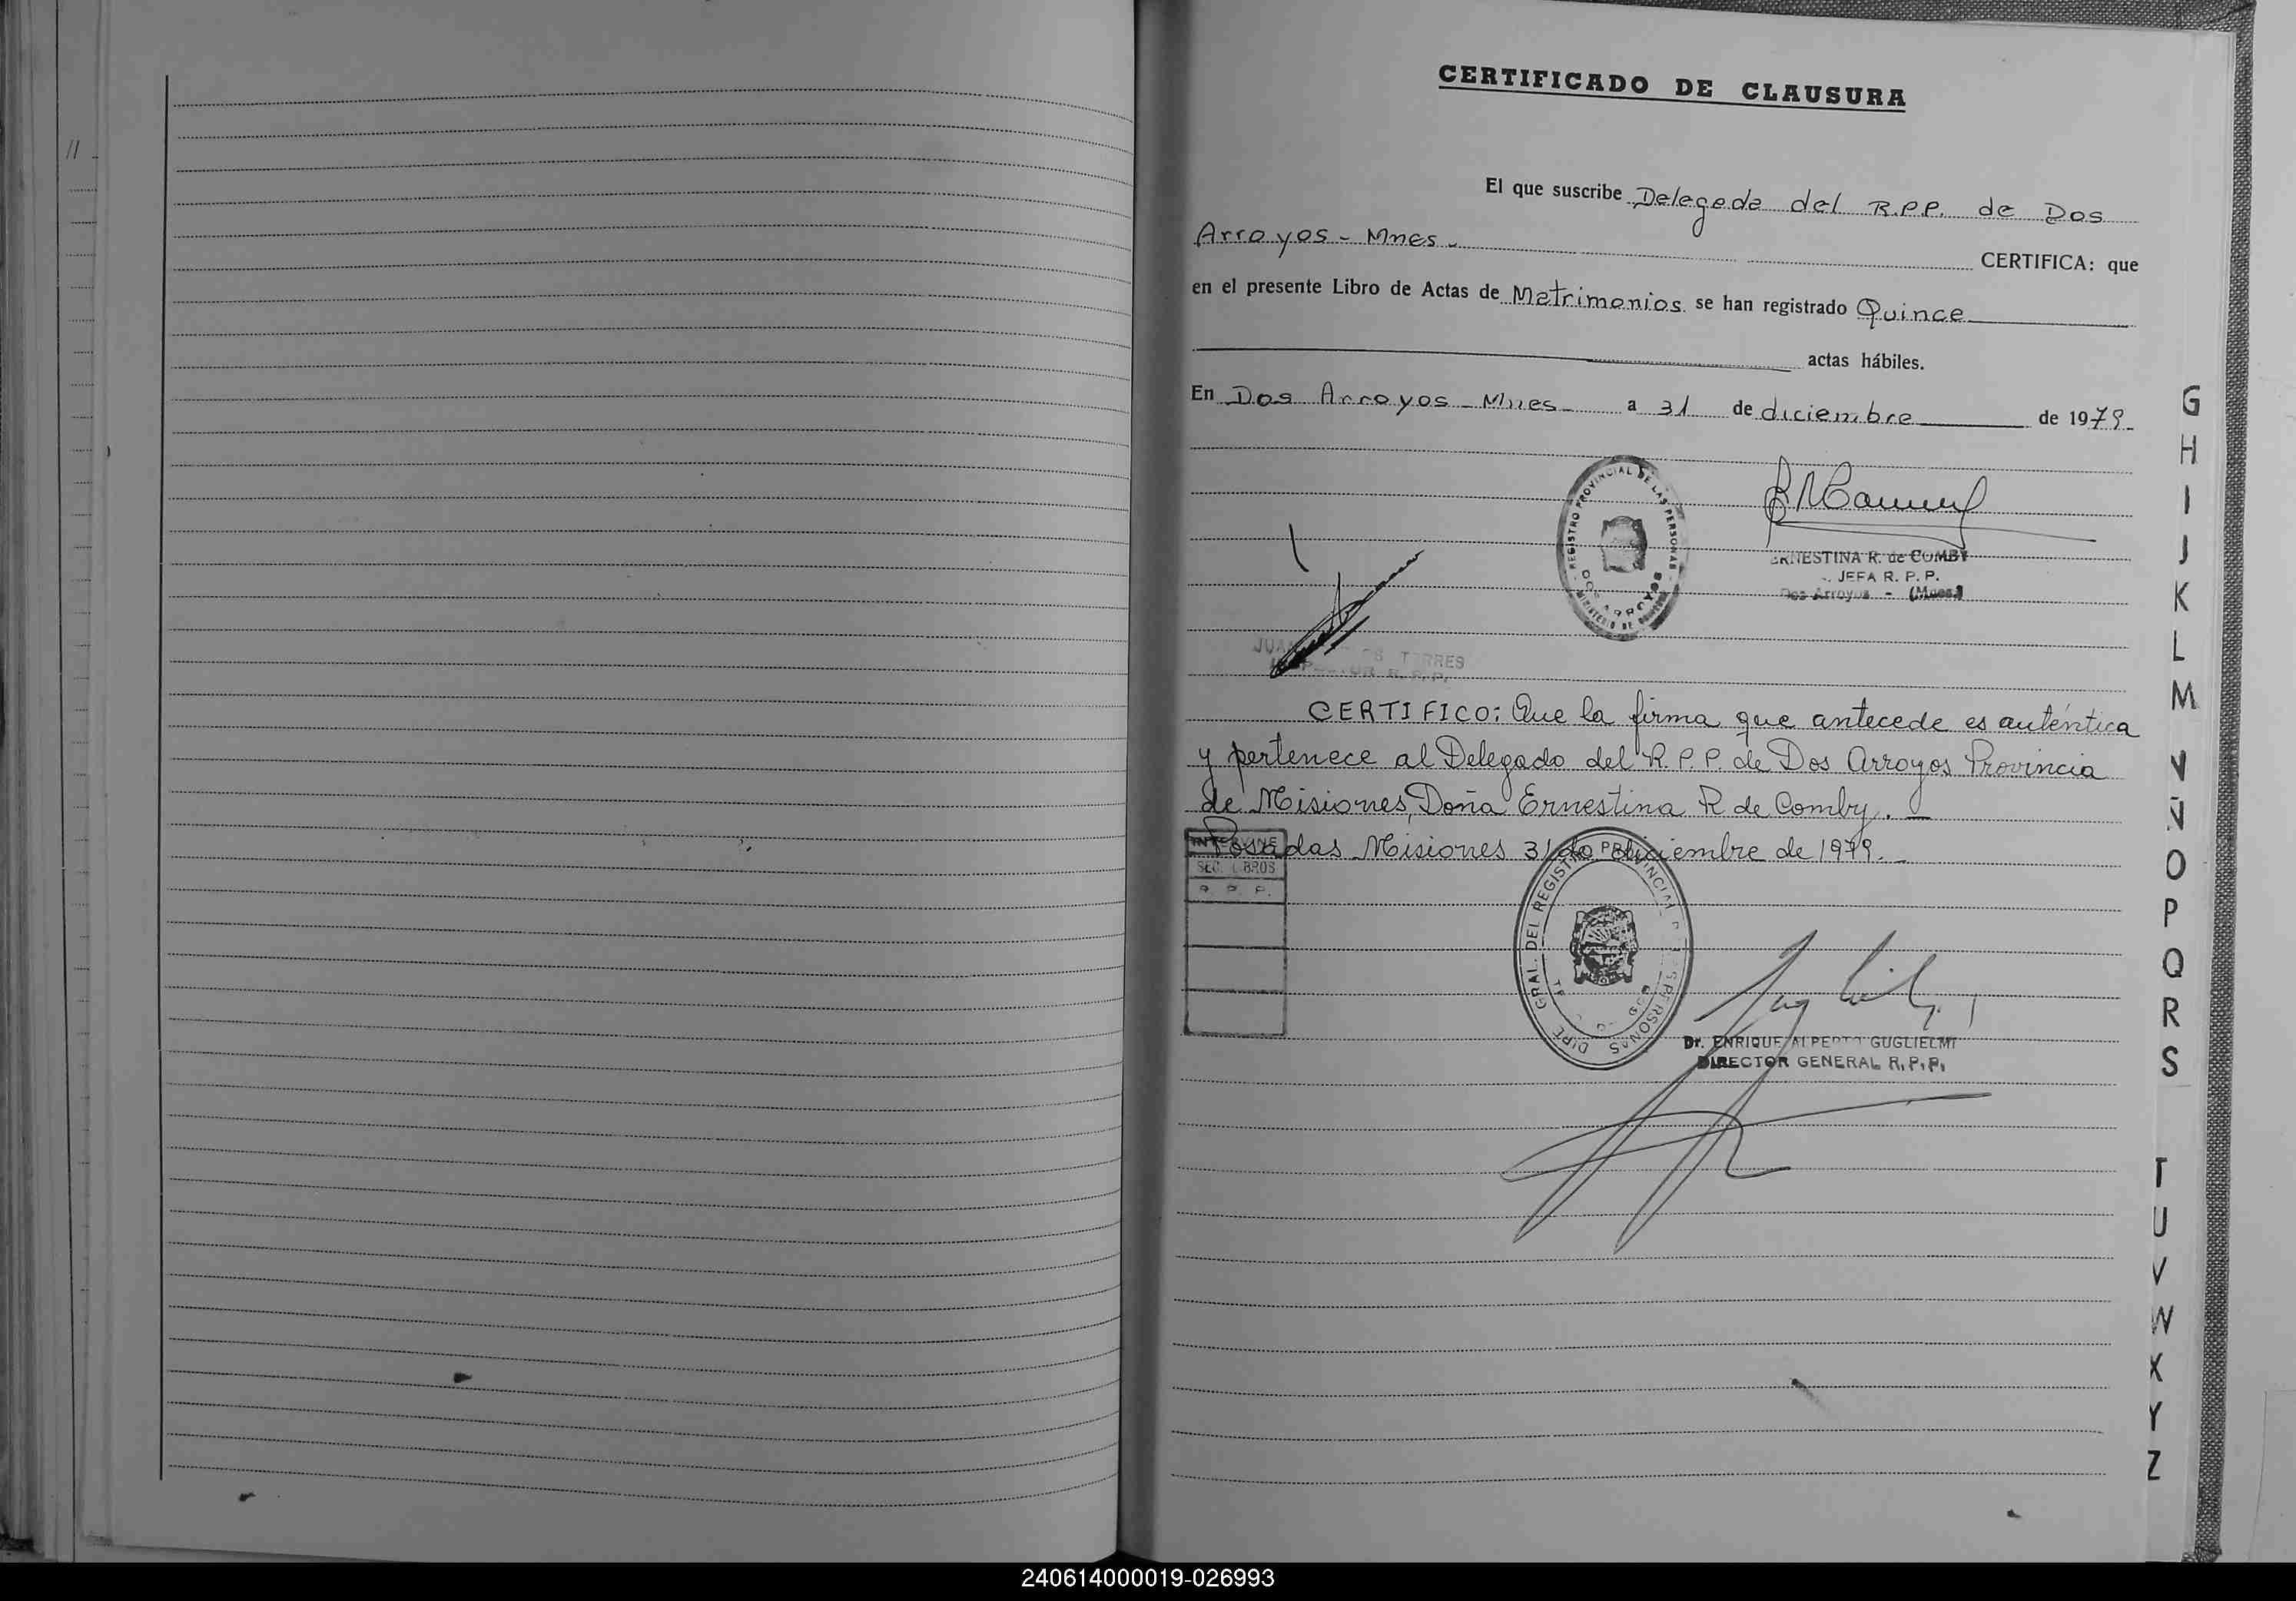 11
CERTIFICADO DE CLAUSURA
El que suscribe Delegada del R.P.P. de Dos
Arroyos - Mnes - CERTIFICA: que
en el presente Libro de Actas de Matrimonios se han registrado Quince
actas hábiles.
En Dos Arroyos - Mnes - a 31 de diciembre de 1979
REGISTRO PROVINCIAL DE LAS PERSONAS
DOS ARROYOS
ERNESTINA R. de COMBY
JEFA R. P. P.
Dos Arroyos - (Mnes.)
TORRES
R. P. P.
CERTIFICO: Que la firma que antecede es auténtica
y pertenece al Delegado del R. P. P. de Dos Arroyos Provincia
de Misiones, Doña Ernestina R de Comby. -
Posadas Misiones 31 de diciembre de 1979. -
SEC. LIBROS
R. P. P.
DIRE. GRAL. DEL REGISTRO PROVINCIAL DE LAS PERSONAS
Dr. ENRIQUE ALBERTO GUGLIELMI
DIRECTOR GENERAL R.P.P.
G
H
I
J
K
L
M
N
Ñ
O
P
Q
R
S
T
U
V
W
X
Y
Z
240614000019-026993